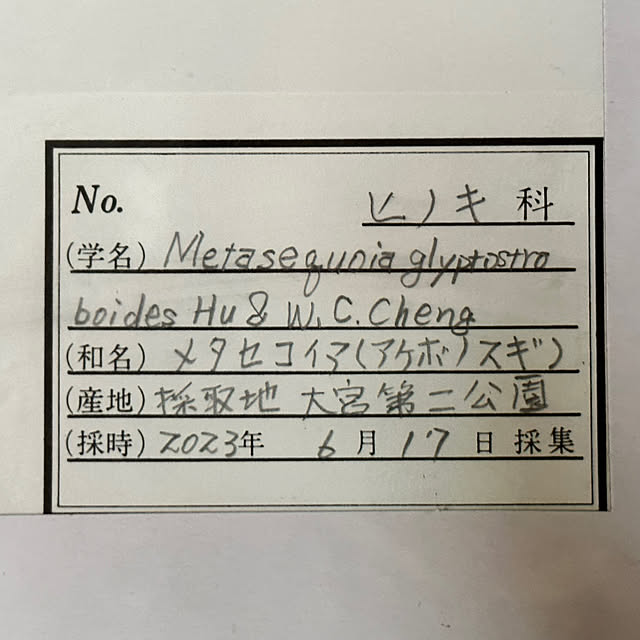 No. ヒノキ科
(学名) Metasequnia glyptostro
boides Hu & W.C.Cheng
(和名) メタセコイア(アケボノスギ)
(産地) 採取地 大宮第二公園
(採時) 2023年 6月17日採集